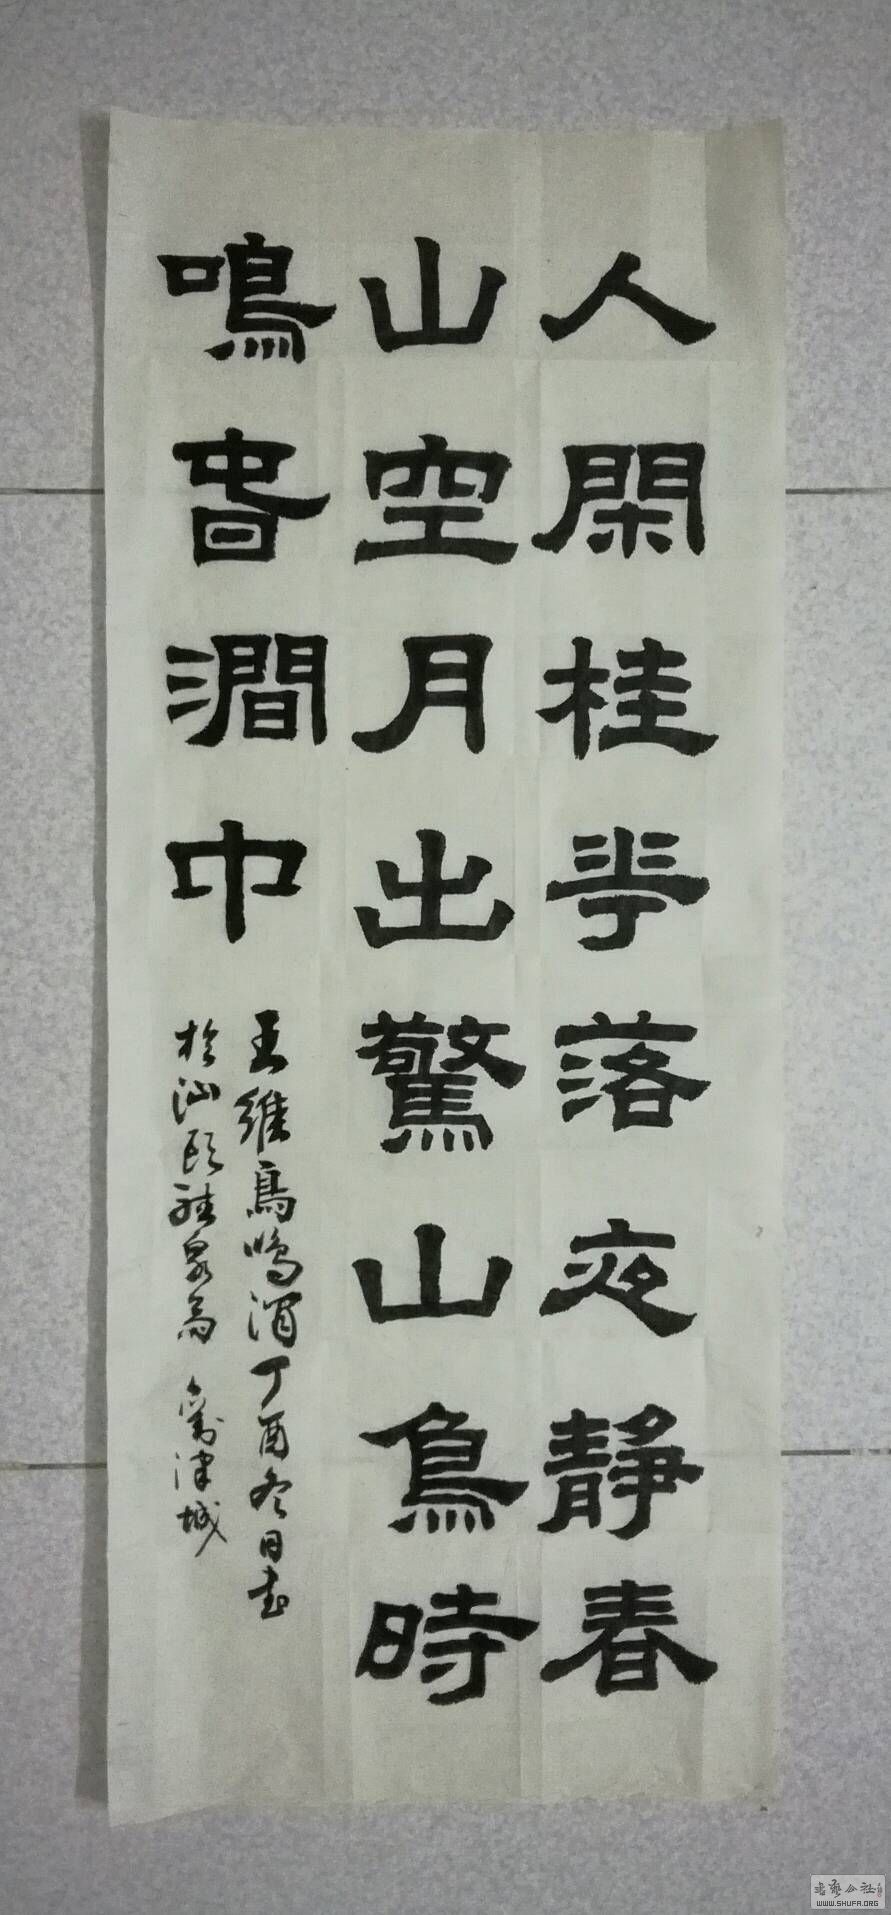 人閑桂華落夜靜春
山空月出驚山鳥時
鳴旾澗中
王維鳥鳴澗丁酉冬日書
於汕頭泉津城
書藝公社
WWW.SHUFA.ORG